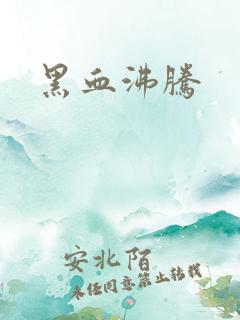 黑血沸騰
安北陌
未经同意禁止转载